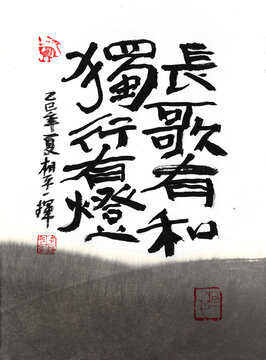 長歌有和
獨行有燈
乙巳年夏相平一揮